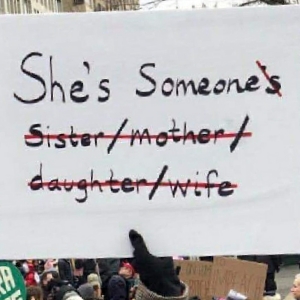 She's Someone's
Sister/mother/
daughter/wife